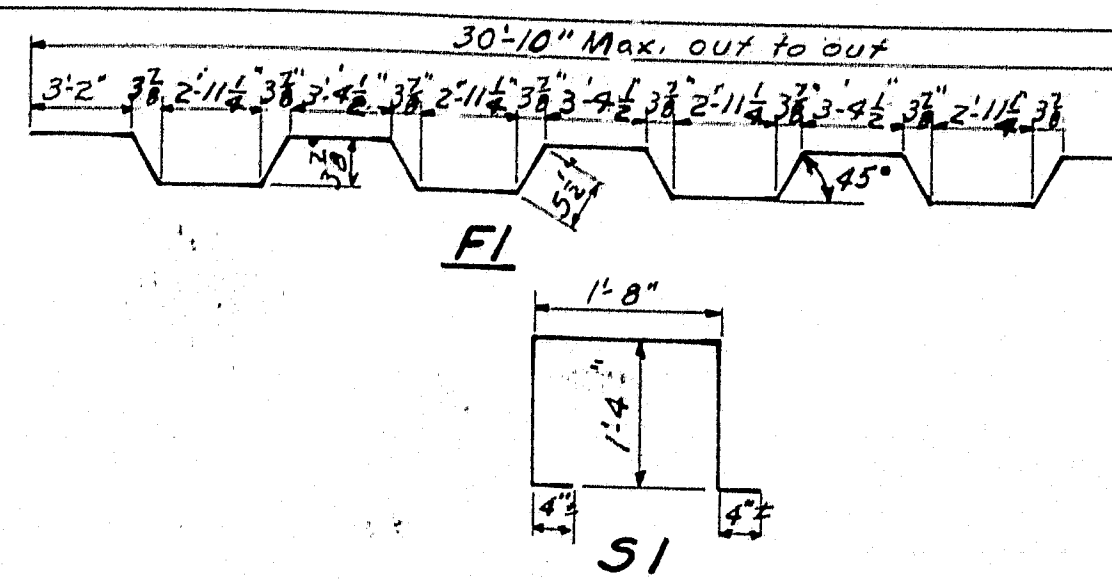 30'-10" Max. out to out
3'-2" 3 7/8 2'-11 1/4" 3 7/8" 3'-4 1/2" 3 7/8" 2'-11 1/4" 3 7/8" 3'-4 1/2" 3 7/8" 2'-11 1/4" 3 7/8" 3'-4 1/2" 3 7/8" 2'-11 1/4" 3 7/8
3 7/8
5 1/2"
45°
F1
1'-8"
1'-4"
4"±
4"±
S1